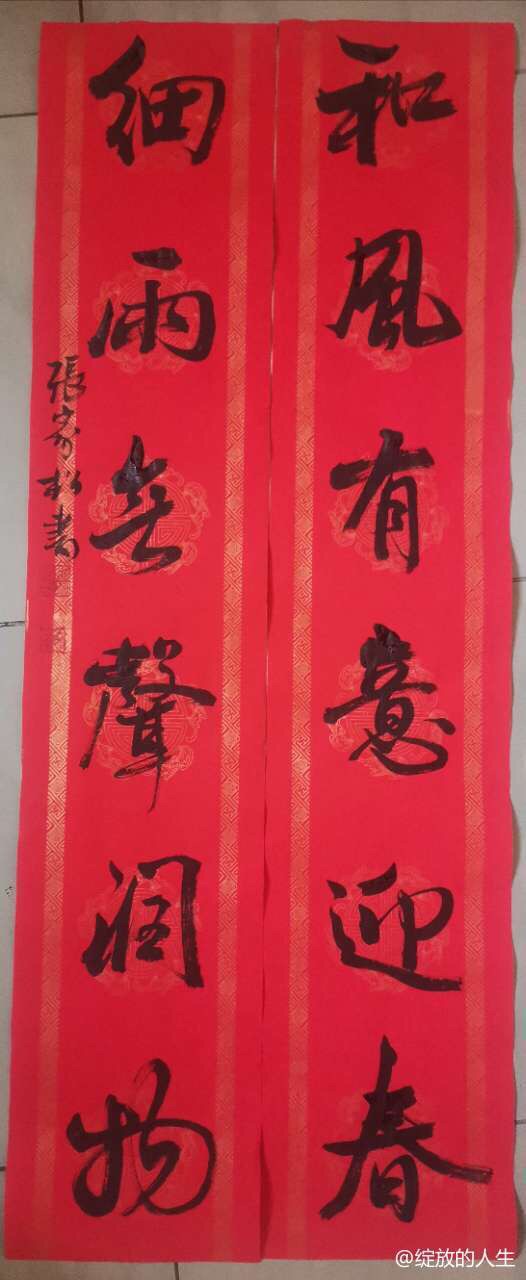 和風有意迎春
細雨無聲润物
張家松書
@绽放的人生